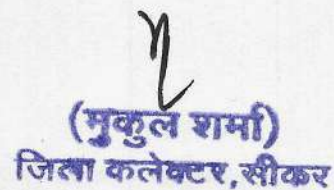 (मुकुल शर्मा)
जिला कलेक्टर, सीकर